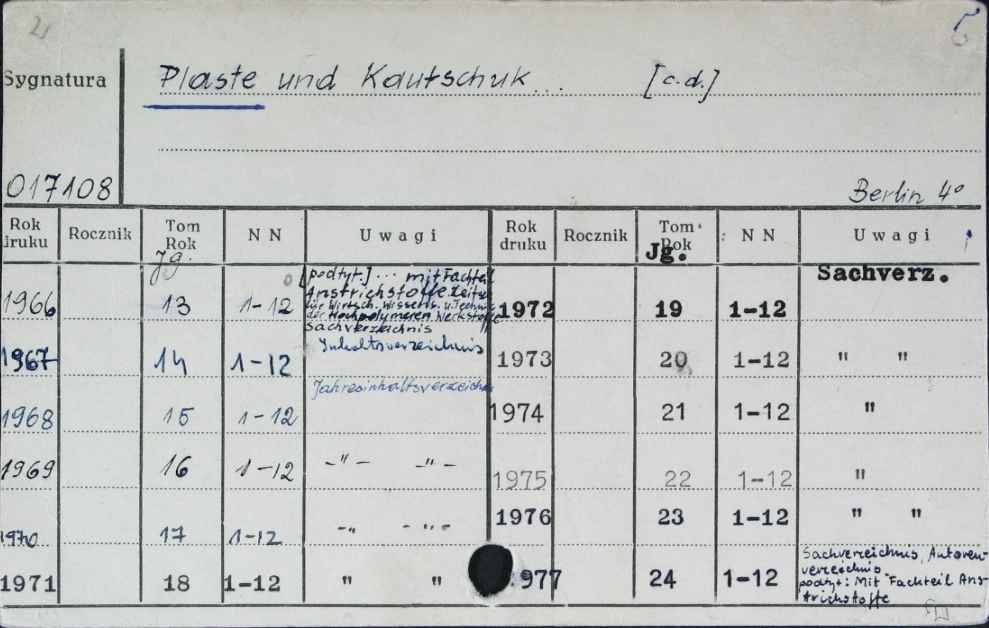 5
Sygnatura
Plaste und Kautschuk... [c.d.]
017108
Berlin 4°
Rok druku Rocznik Tom Rok Jg. NN Uwagi Rok druku Rocznik Tom Rok Jg. NN Uwagi
Sachverz.
1966 13 1-12 [podtyt.] ... mit Fachteil
Anstrichstoffe
für Wirtsch. Wissens. u. Technik
der Hochpolymeren Werkstoffe
Sachverzeichnis
1972 19 1-12
1967 14 1-12 Inhaltsverzeichnis 1973 20 1-12 " "
1968 15 1-12 1974 21 1-12 "
1969 16 1-12 -"- -"- 1975 22 1-12 "
1970 17 1-12 -"- -"- 1976 23 1-12 " "
1971 18 1-12 " " 1977 24 1-12 Sachverzeichnis, Autoren-
verzeichnis
podtyt: Mit Fachteil Ans-
trichstoffe